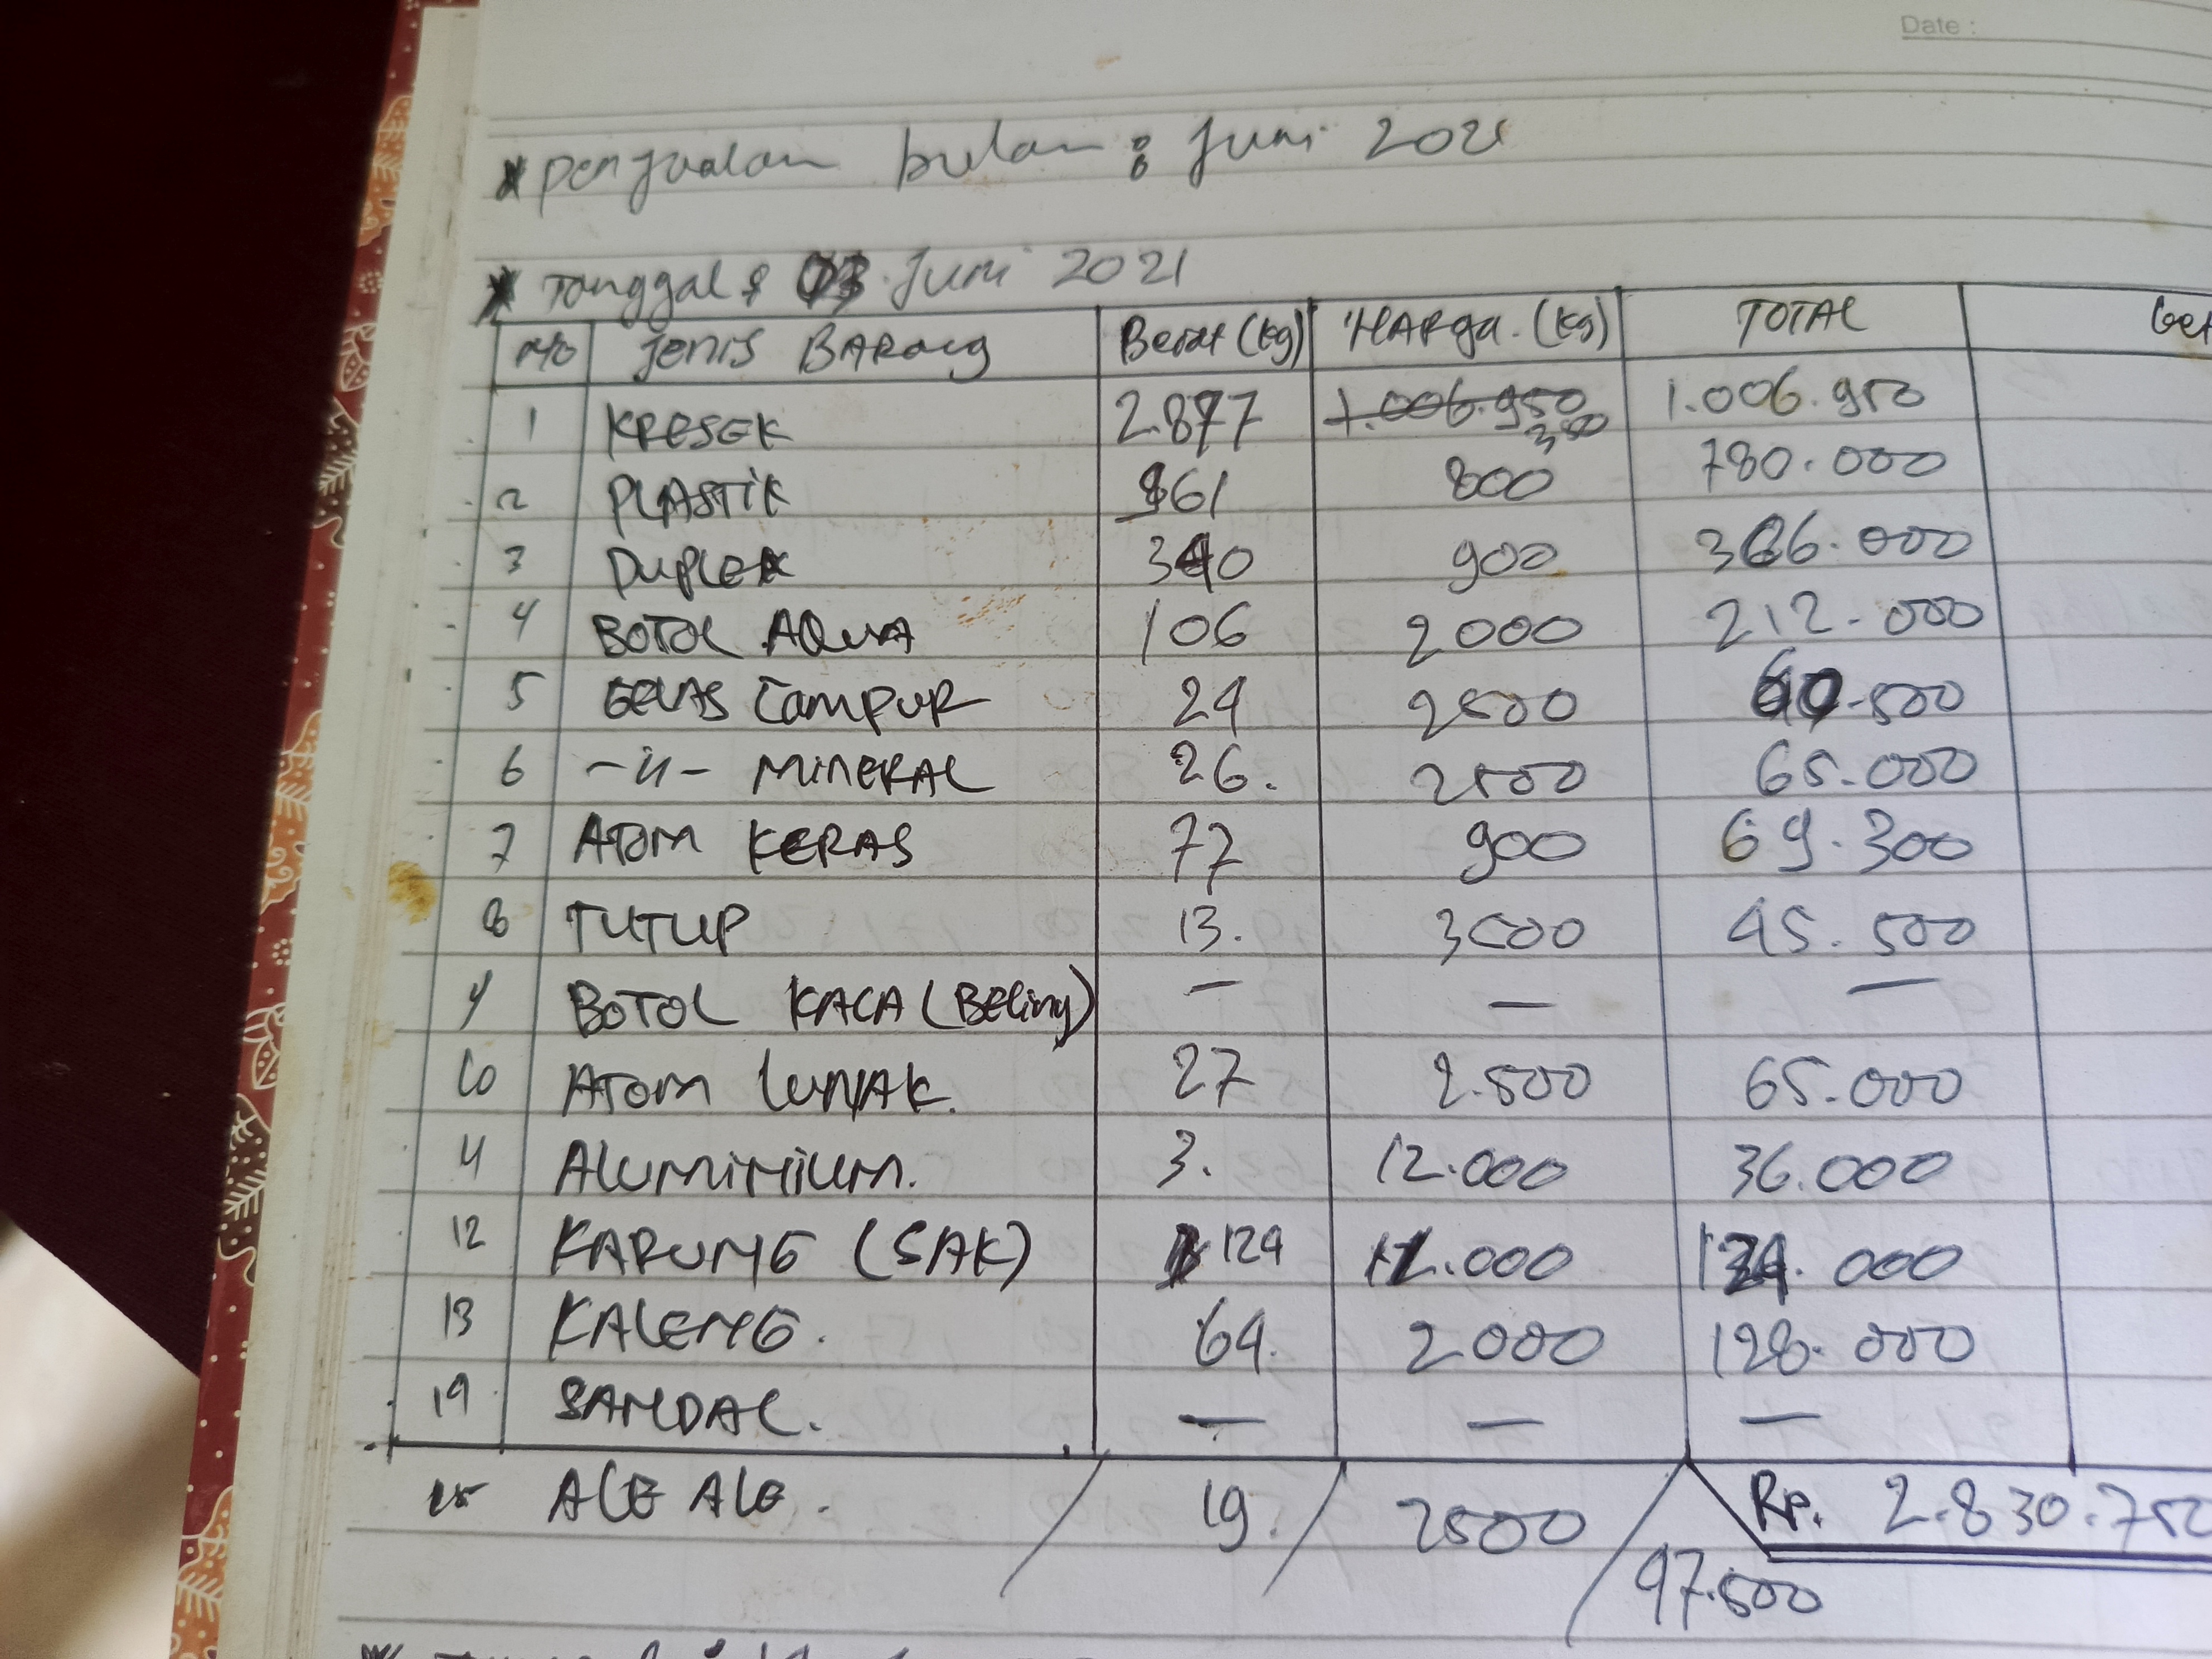 Date :
* Penjualan bulan : Juni 2021
* Tanggal : 03 Juni 2021
No Jenis BARang Berat (kg) HARga. (kg) TOTAL
1 KRESEK 2.877 1.006.950 350 1.006.950
2 PLASTIK 961 800 780.000
3 DUPLEK 340 900 366.000
4 BOTOL AQUA 106 2000 212.000
5 GELAS Campur 24 2500 60.500
6 -"- MINERAL 26. 2500 65.000
7 ATOM KERAS 77 900 69.300
8 TUTUP 13. 3500 45.500
9 BOTOL KACA (Beling) — — —
10 ATOM LUNAK. 27 2.500 65.000
11 ALUMINIUM. 3. 12.000 36.000
12 KARUNG (SAK) 124 1.000 124.000
13 KALENG. 64. 2000 128.000
14 SANDAL. — — —
Rp. 2.830.750
15 ALE ALE. / 19. / 2500 / 47.500